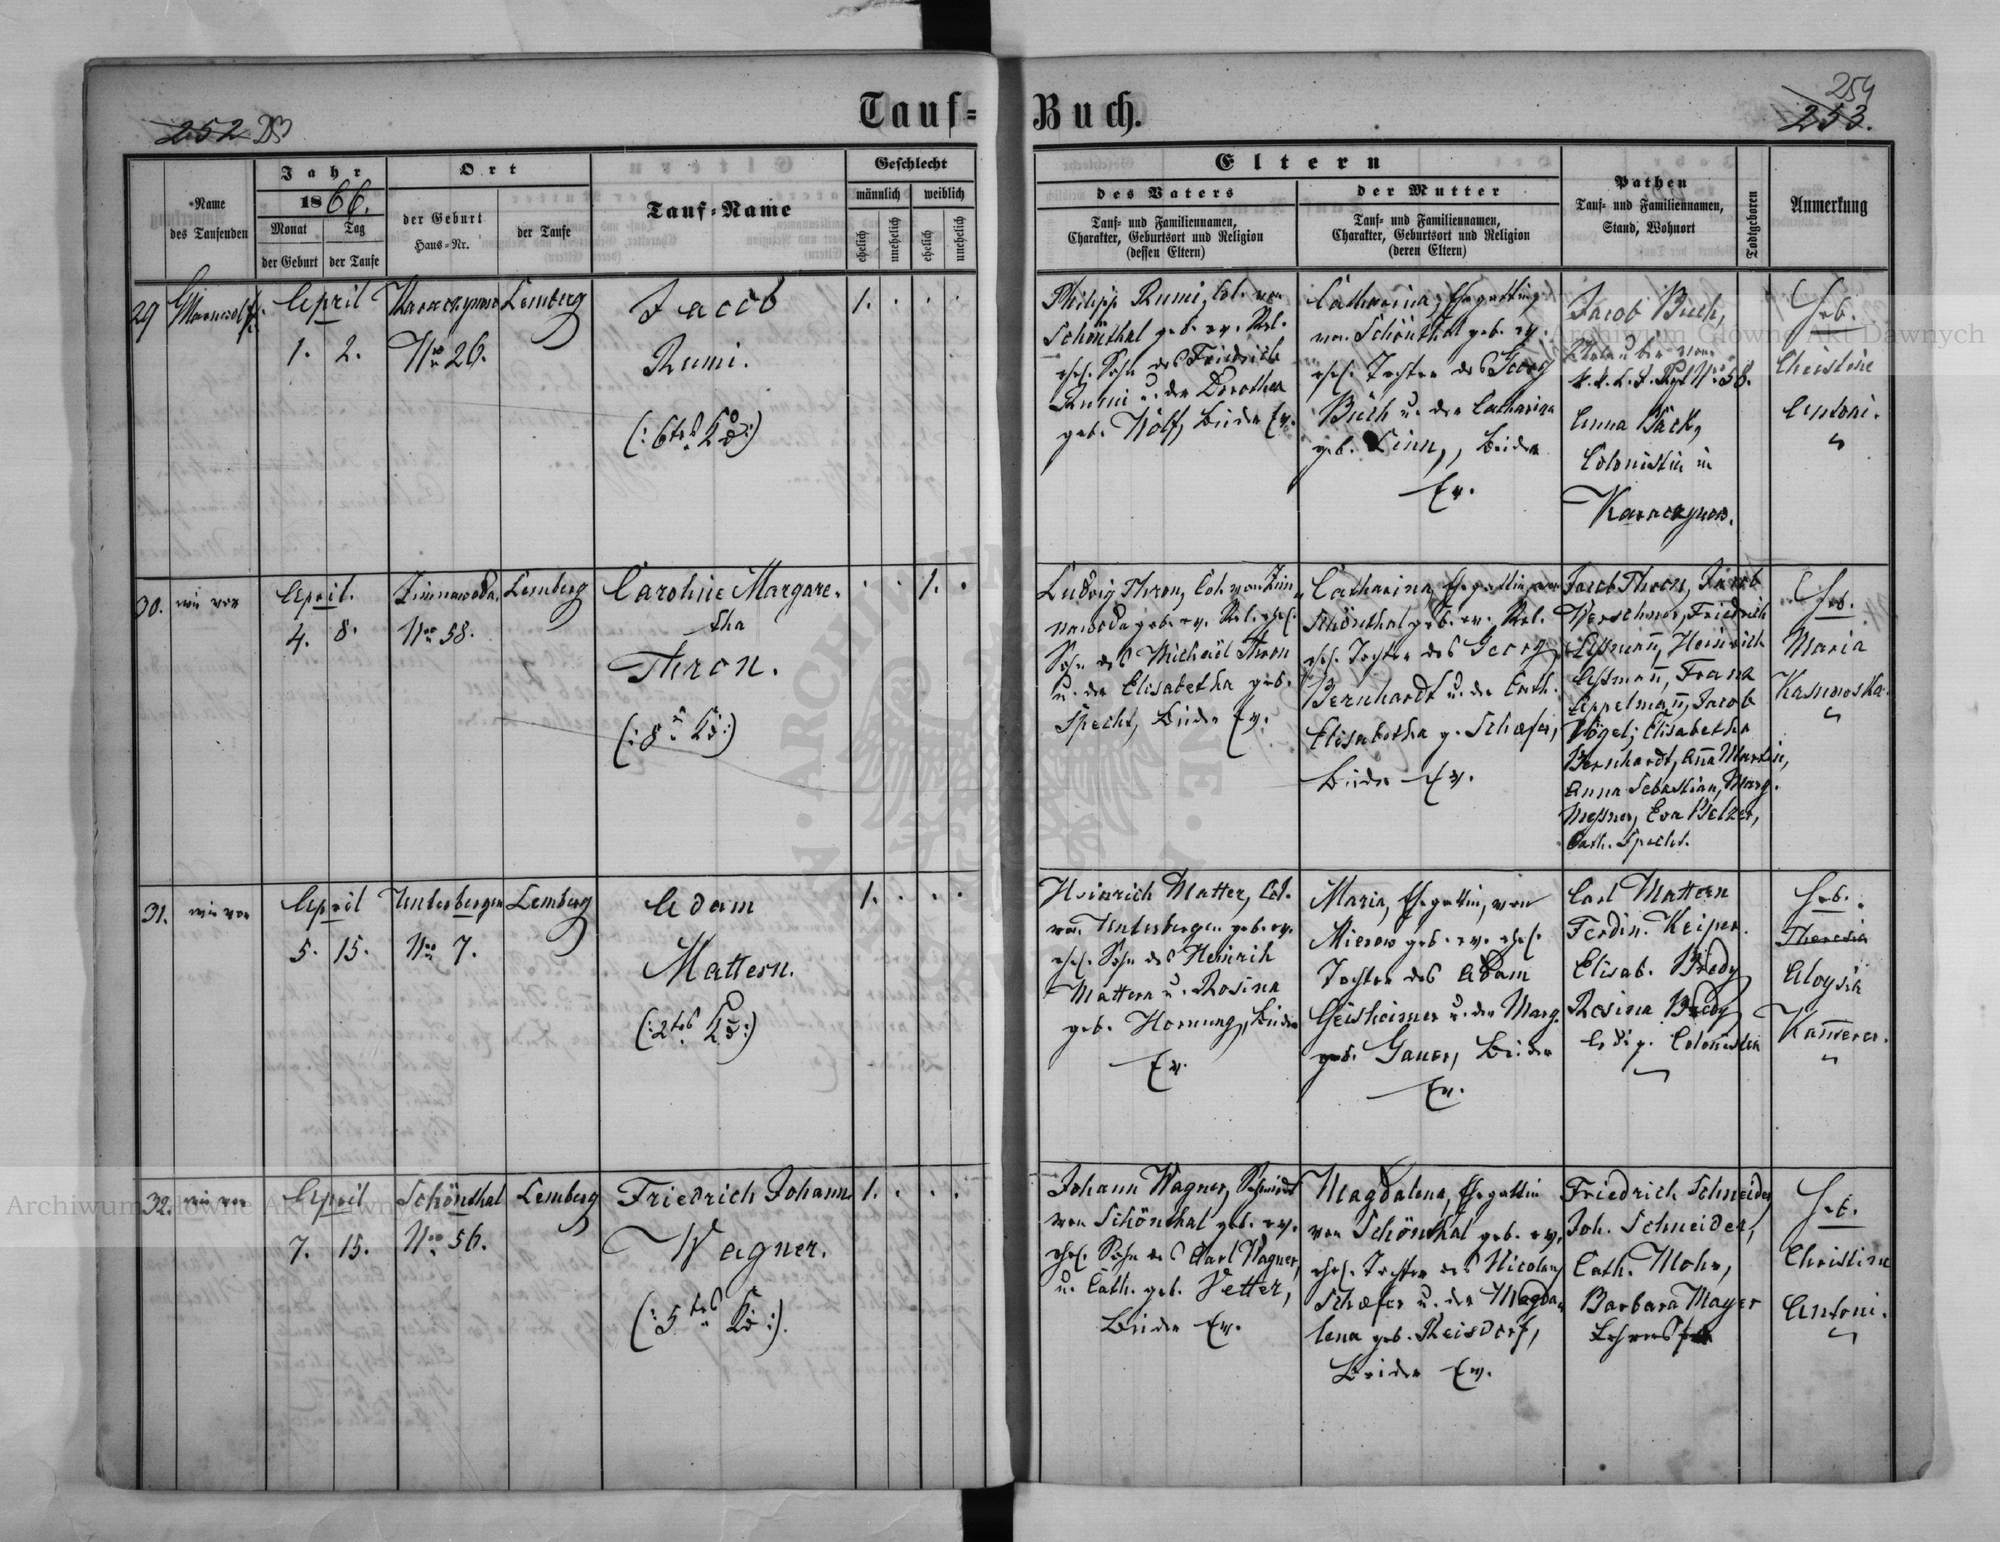 Tauf-Buch.
252 253
254
253.
Name
des Taufenden
Jahr
1866.
Monat
Tag
der Geburt
der Taufe
Ort
der Geburt
Haus-Nr.
der Taufe
Tauf-Name
Geschlecht
männlich
weiblich
ehelich
unehelich
ehelich
unehelich
Eltern
des Vaters
Tauf- und Familiennamen,
Charakter, Geburtsort und Religion
(dessen Eltern)
der Mutter
Tauf- und Familiennamen,
Charakter, Geburtsort und Religion
(deren Eltern)
Pathen
Tauf- und Familiennamen,
Stand, Wohnort
Todtgeboren
Anmerkung
29
April
1. 2.
Karaczynow
No 26.
Lemberg
Jacob
Rumi.
(: 6tes Kd :)
1.
Philipp Rumi, Col. von
Schönthal geb. ev. Rel.
ehel. Sohn des Friedrich
Rumi u. der Dorothea
geb. Wolf, beide Ev.
Catharina, Ehegattin,
von Schönthal geb. ev.
ehel. Tochter des Georg
Buch u. der Catharina
geb. Linn, beide
Ev.
Jacob Buch,
k. k. L. I. Rgt No 58.
Anna Bäck,
Colonistin in
Karaczynow.
Heb.
Christine
Antoni.
30.
wie vor
April.
4. 8.
Zimnawoda
No 58.
Lemberg
Caroline Margare-
tha
Thron.
(: 8 Kd :)
1.
Ludwig Thron, Col. von Zim
nawoda geb. ev. Rel. ehel.
Sohn des Michael Thron
u. der Elisabetha geb.
Specht, beide Ev.
Catharina, Ehegattin, von
Schönthal geb. ev. Rel.
ehel. Tochter des Georg
Bernhardt u. der Cath.
Elisabetha g. Schæfer,
beide Ev.
Jacob Thron, Jacob
Werschner, Friedrich
Assmann, Heinrich
Assmann, Franz
Appelmann, Jacob
Vögel; Elisabetha
Bernhardt, Anna Martin,
Anna Sebastian, Marg.
Messner, Eva Belzer,
Cath. Specht.
Heb.
Maria
31.
wie vor
April
5. 15.
Unterbergen
No 7.
Lemberg
Adam
Mattern.
(: 2tes Kd :)
1.
Heinrich Matter, Col.
von Unterbergen geb. ev.
ehel. Sohn des Heinrich
Mattern u. Rosina
geb. Hornung, beide
Ev.
Maria, Ehegattin, von
Mierow geb. ev. ehel.
Tochter des Adam
Geisheimer u. der Marg.
geb. Gauer, beide
Ev.
Carl Mattern
Ferdin. Keiper.
Elisab. Bredy
Rosina Bredy
Heb.
Theresia
Aloysia
Kammerer.
32.
wie vor
April
7. 15.
Schönthal
No 56.
Lemberg
Friedrich Johann
Wagner.
(: 5tes Kd :)
1.
Johann Wagner, Schmied
von Schönthal geb. ev.
ehel. Sohn des Carl Wagner,
u. Cath. geb. Vetter,
beide Ev.
Magdalena, Ehegattin
von Schönthal geb. ev.
ehel. Tochter des Nicolaus
Schæfer u. der Magda-
lena geb. Reisdorf,
beide Ev.
Friedrich Schneider,
Joh. Schneider,
Cath. Mohr,
Barbara Mayer
Heb.
Christine
Antoni.
Archiwum Główne Akt Dawnych
Archiwum Główne Akt Dawnych